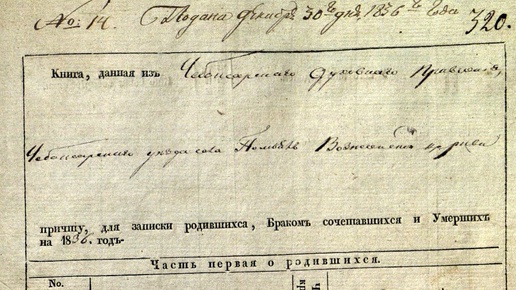 No: 14. Подана Декабр. 30го дня, 1836го Года 320.
Книга, данная изъ Чебоксарскаго Духовнаго Правленія,
Чебоксарскаго уѣзда села Вознесенской церкви
причту, для записки родившихся, Бракомъ сочетавшихся и Умершихъ
на 1836. годъ-
Часть первая о родившихся.
No.